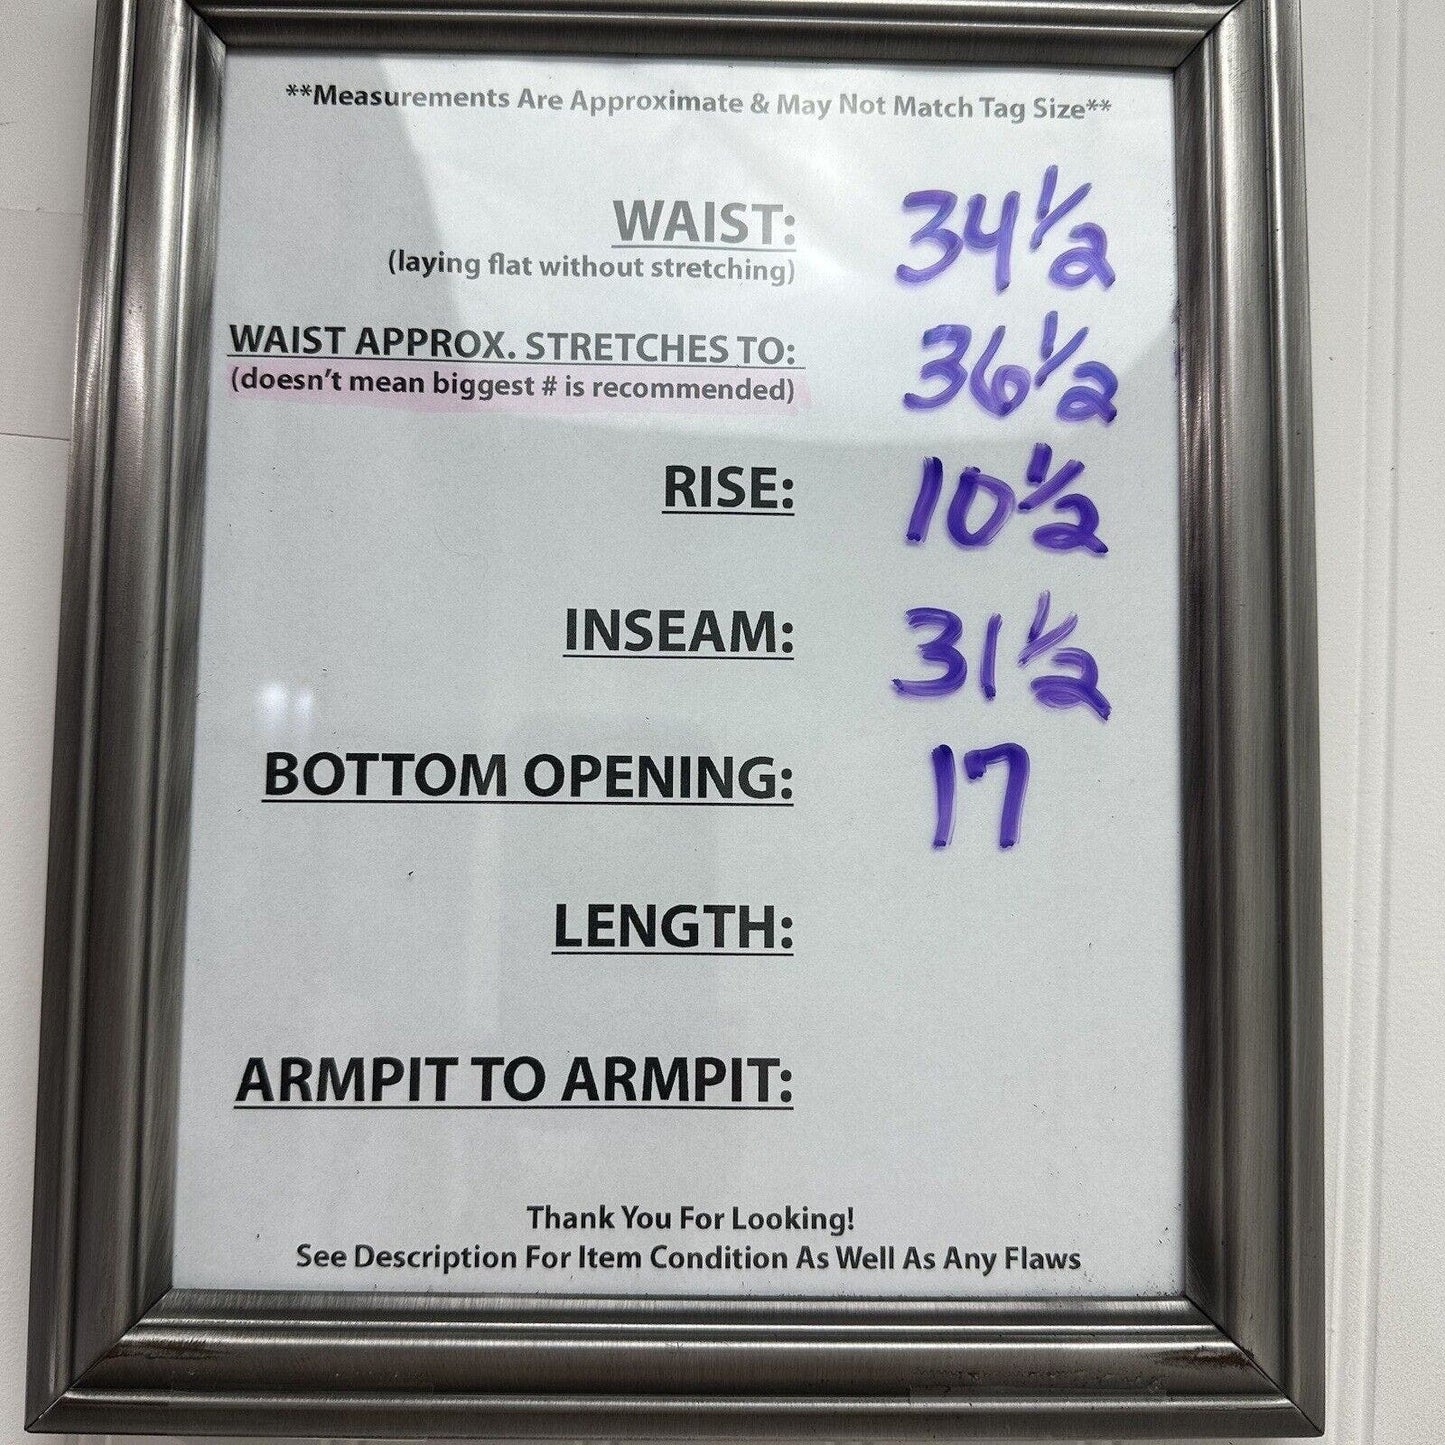 **Measurements Are Approximate & May Not Match Tag Size**
WAIST: 34 1/2
(laying flat without stretching)
WAIST APPROX. STRETCHES TO: 36 1/2
(doesn't mean biggest # is recommended)
RISE: 10 1/2
INSEAM: 31 1/2
BOTTOM OPENING: 17
LENGTH:
ARMPIT TO ARMPIT:
Thank You For Looking!
See Description For Item Condition As Well As Any Flaws